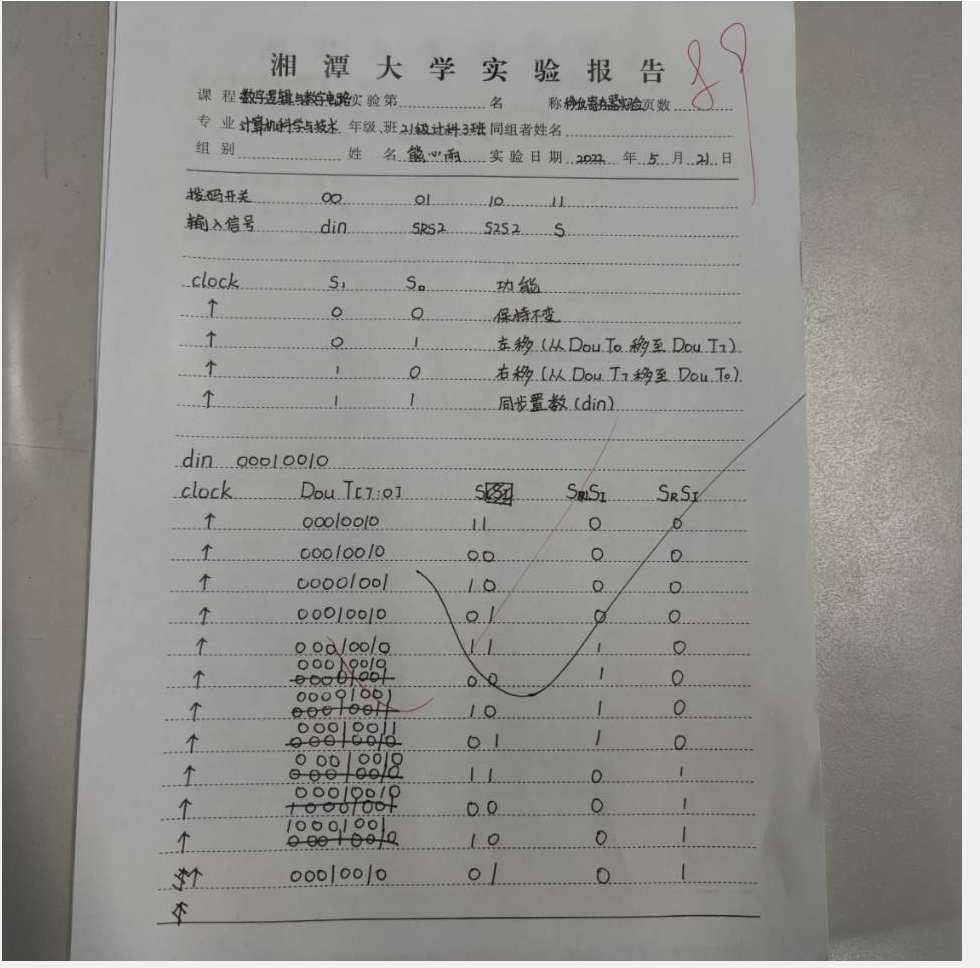 湘潭大学实验报告
89
课程 数字逻辑与数字电路 实验第 名称 移位寄存器实验 页数
专业 计算机科学与技术 年级、班 21级计科3班 同组者姓名
组别 姓名 熊心雨 实验日期 2022年5月21日
拨码开关 00 01 10 11
输入信号 din SRS2 S2S2 S
clock S1 S0 功能
↑ 0 0 保持不变
↑ 0 1 左移(从DouT0移至DouT7)
↑ 1 0 右移(从DouT7移至DouT0)
↑ 1 1 同步置数(din)
din 00010010
clock DouT[7:0] S SRSI
↑ 00010010 11 0 0
↑ 00010010 00 0 0
↑ 00001001 10 0 0
↑ 00010010 01 0 0
↑ 00010010 11 1 0
↑ 00010010 00 1 0
↑ 00001001 10 1 0
↑ 00010011 01 1 0
↑ 00010010 11 0 1
↑ 00010010 00 0 1
↑ 10001001 10 0 1
↑ 00010010 01 0 1